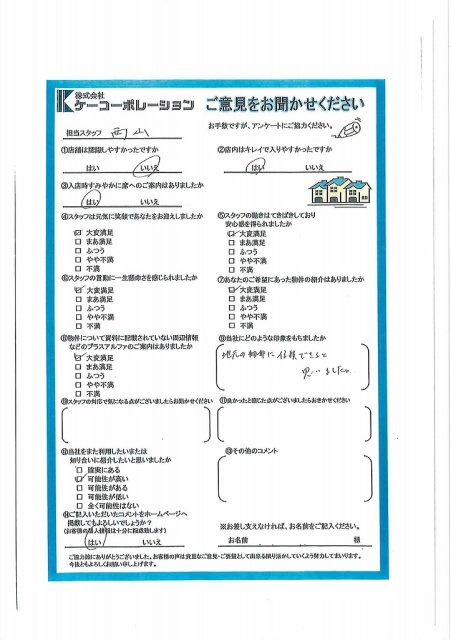 株式会社
ケーコーポレーション ご意見をお聞かせください
担当スタッフ 西山
お手数ですが、アンケートにご協力ください。
①店舗は認識しやすかったですか
はい いいえ
②店内はキレイで入りやすかったですか
はい いいえ
③入店時すみやかに席へのご案内はありましたか
はい いいえ
④スタッフは元気に笑顔であなたをお迎えしましたか
大変満足
まあ満足
ふつう
やや不満
不満
⑤スタッフの動きはてきぱきしており
安心感を得られましたか
大変満足
まあ満足
ふつう
やや不満
不満
⑥スタッフの言動に一生懸命さを感じられましたか
大変満足
まあ満足
ふつう
やや不満
不満
⑦あなたのご希望にあった物件の紹介はありましたか
大変満足
まあ満足
ふつう
やや不満
不満
⑧物件について資料に記載されていない周辺情報
などのプラスアルファのご案内はありましたか
大変満足
まあ満足
ふつう
やや不満
不満
⑨当社にどのような印象をもちましたか
思いました。
⑩スタッフの対応で気になる点がございましたらお聞かせください
⑪良かったと感じた点がございましたらおきかせください
⑫当社をまた利用したいまたは
知り合いに紹介したいと思いましたか
確実にある
可能性が高い
可能性がある
可能性が低い
全く可能性はない
⑬その他のコメント
⑭ご記入いただいたコメントをホームページへ
掲載してもよろしいでしょうか?
(お客様の個人情報は十分に配慮致します)
はい いいえ
※お差し支えなければ、お名前をご記入ください。
お名前 様
ご協力誠にありがとうございました。お客様の声は貴重なご意見・ご要望として出来る限り活かしていくよう努力してまいります。
今後ともよろしくお願い申し上げます。